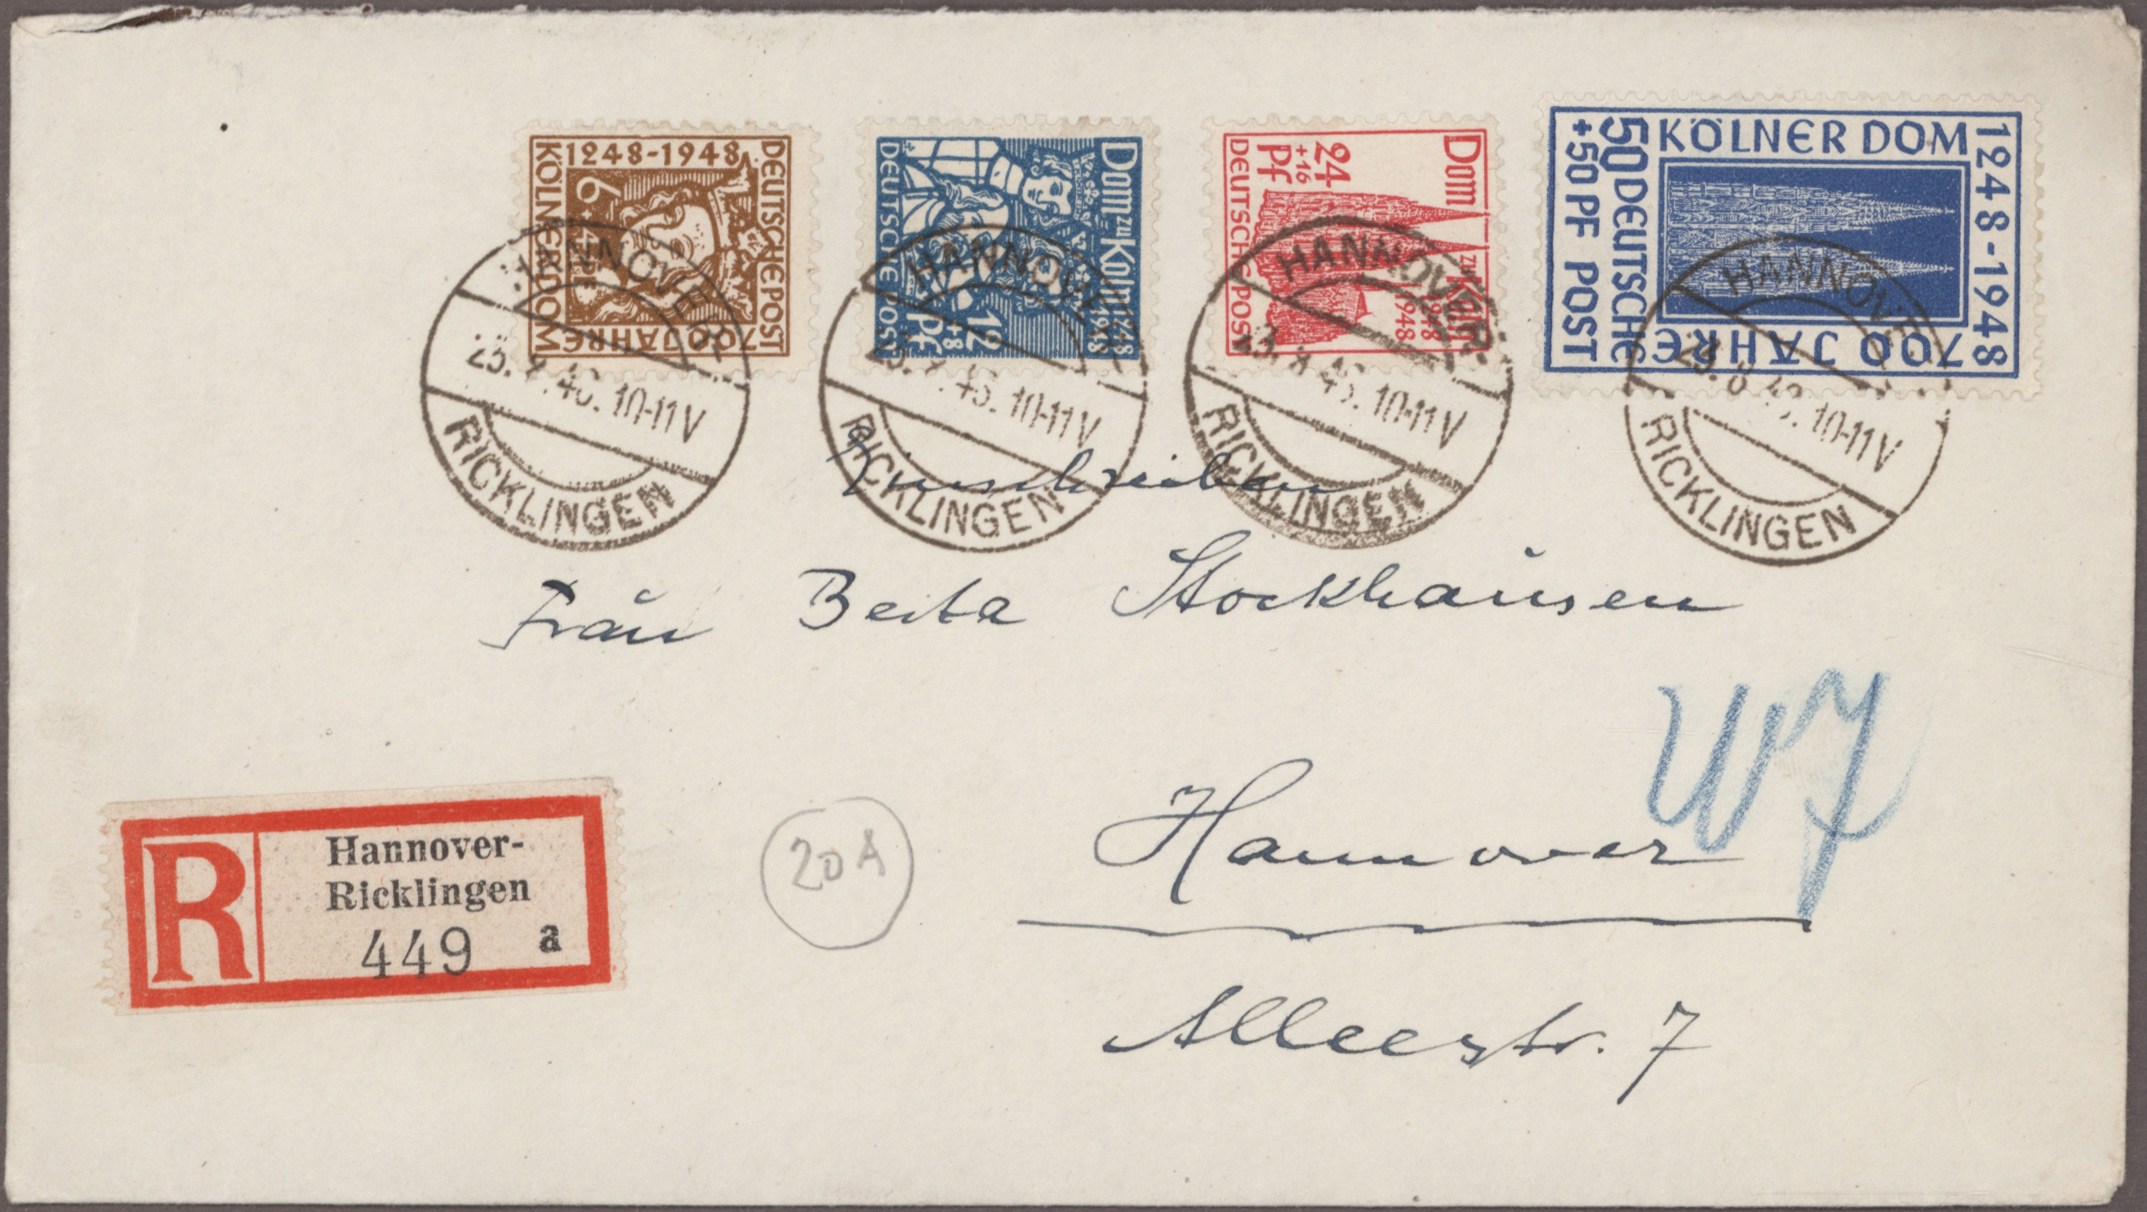 1248-1948
KÖLNER DOM
700 JAHRE
DEUTSCHE POST
6
Dom zu Köln 1248 1948
12
+8
Pf
DEUTSCHE POST
Dom zu Köln 1248 1948
24
+16
Pf
DEUTSCHE POST
KÖLNER DOM
1248-1948
700 JAHRE
50 DEUTSCHE
+50 PF POST
HANNOVER
10-11V
RICKLINGEN
HANNOVER
10-11V
RICKLINGEN
HANNOVER
10-11V
RICKLINGEN
HANNOVER
10-11V
RICKLINGEN
Einschreiben
Frau Berta Stockhausen
W7
Hannover
Alleestr. 7
20A
R
Hannover-
Ricklingen
449 a